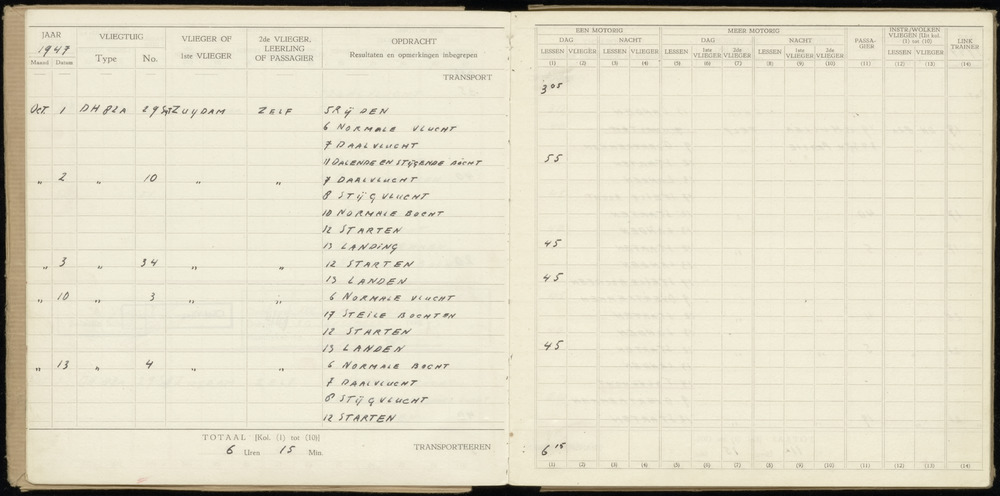 JAAR
1947
Maand Datum
VLIEGTUIG
Type No.
VLIEGER OF
1ste VLIEGER
2de VLIEGER,
LEERLING
OF PASSAGIER
OPDRACHT
Resultaten en opmerkingen inbegrepen
TRANSPORT
Oct. 1 DH 82A 29 ZUYDAM ZELF 5 RijDEN
6 NORMALE VLUCHT
7 DAALVLUCHT
11 DALENDE EN STIJGENDE BOCHT
„ 2 „ 10 „ „ 7 DAALVLUCHT
8 STijGVLUCHT
10 NORMALE BOCHT
12 STARTEN
13 LANDING
„ 3 „ 34 „ „ 12 STARTEN
13 LANDEN
„ 10 „ 3 „ „ 6 NORMALE VLUCHT
17 STEILE BOCHTEN
12 STARTEN
13 LANDEN
„ 13 „ 4 „ „ 6 NORMALE BOCHT
7 DAALVLUCHT
8 STijGVLUCHT
12 STARTEN
TOTAAL [Kol. (1) tot (10)]
6 Uren 15 Min.
TRANSPORTEEREN
EEN MOTORIG MEER MOTORIG
DAG NACHT DAG NACHT
LESSEN VLIEGER LESSEN VLIEGER LESSEN 1ste VLIEGER 2de VLIEGER LESSEN 1ste VLIEGER 2de VLIEGER
PASSA-
GIER
INSTR./WOLKEN
VLIEGEN [Uit kol.
(1) tot (10)]
LESSEN VLIEGER
LINK
TRAINER
(1) (2) (3) (4) (5) (6) (7) (8) (9) (10) (11) (12) (13) (14)
3 05
55
45
45
45
6 15
(1) (2) (3) (4) (5) (6) (7) (8) (9) (10) (11) (12) (13) (14)